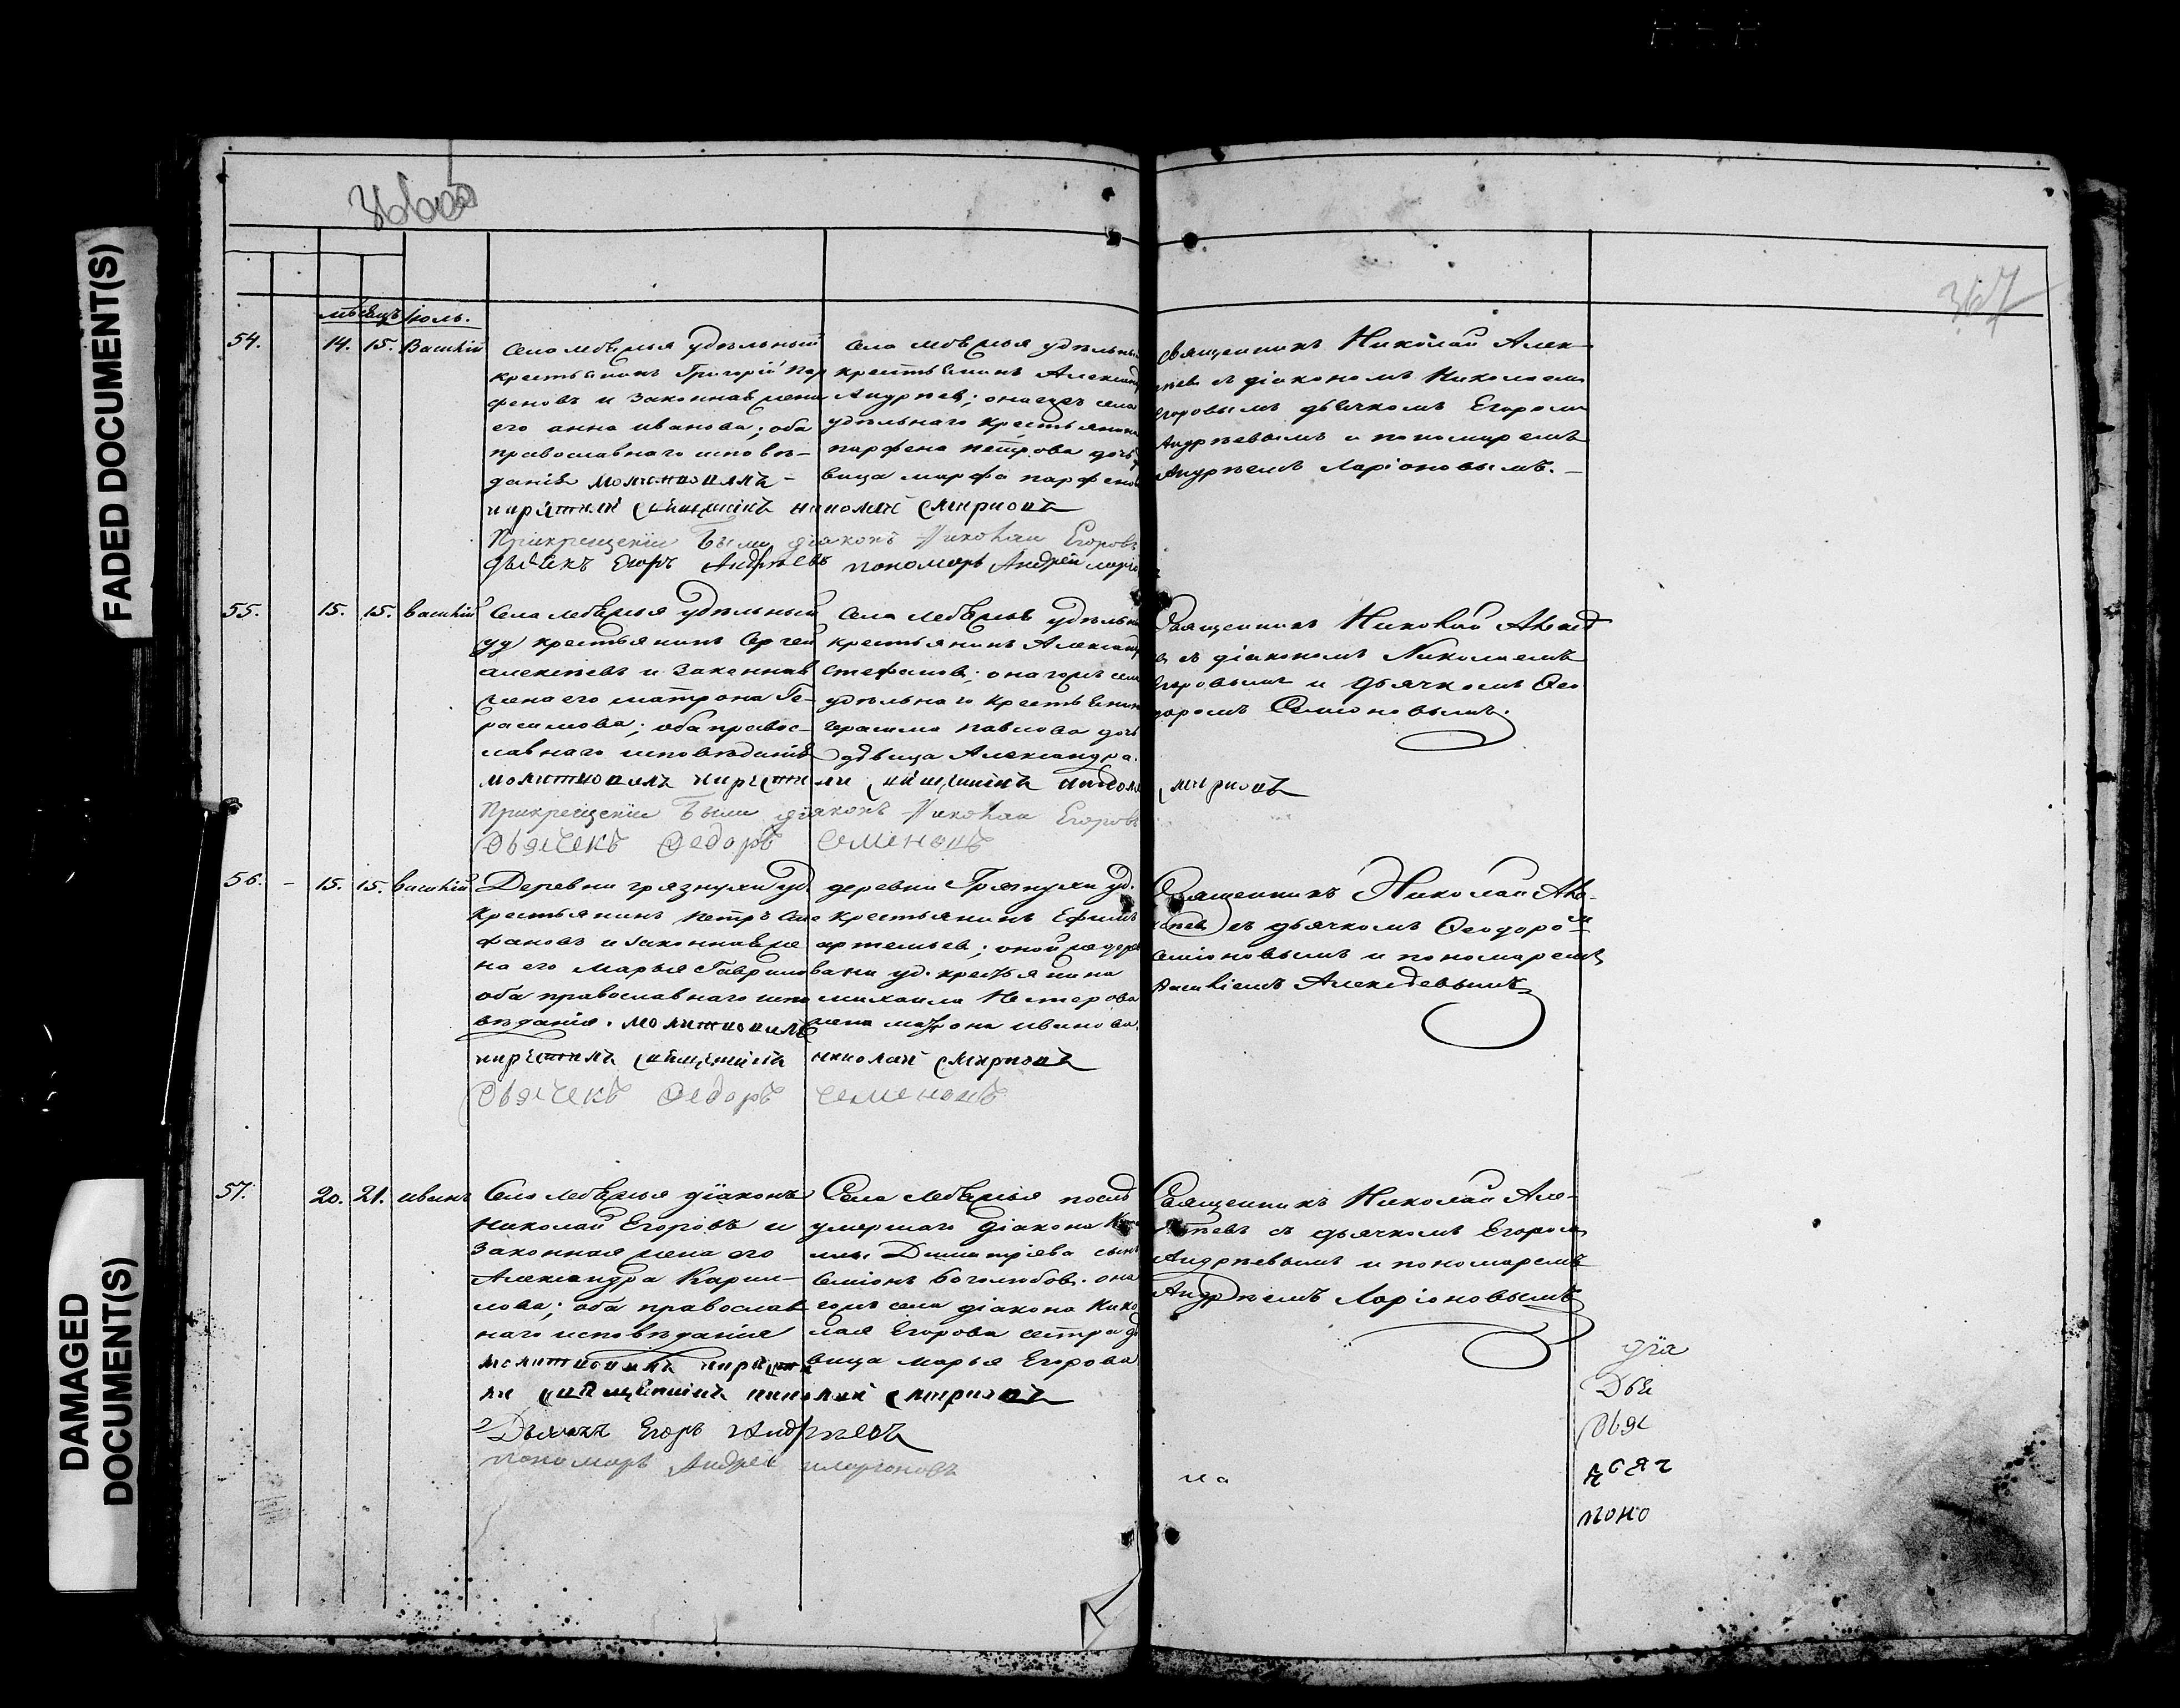 FADED DOCUMENT(S)
DAMAGED DOCUMENT(S)
367
мѣсяцъ Іюль.
54. 14. 15. Василій
Села Лебяжья удѣльный
крестьянинъ Григорій Пар
феновъ и законная жена
его Анна Иванова; оба
православнаго исповѣ-
данія молитвовалъ
и крестилъ священникъ Николай Смирновъ
При крещеніи были діаконъ Николай Егоровъ
Дьячекъ Егоръ Андрѣевъ пономарь Андрей Ларіо
Села Лебяжья удѣльный
крестьянинъ Александ
Андрѣев; онагожъ села
удѣльнаго крестьянина
Парфена Петрова дочь
вица Марфа Парфенов
Священникъ Николай Алек
ѣевъ съ діакономъ Николаемъ
Егоровымъ дьячкомъ Егоромъ
Андрѣевымъ и пономаремъ
Андрѣемъ Ларіоновымъ.
55. 15. 15. Василій
Села Лебяжья удѣльный
крестьянинъ Сергей
Алексѣевъ и законная
жена его Матрона Ге-
расимова; оба правос-
лавнаго исповѣданія
молитвовалъ и крестилъ священникъ Николай Смирновъ
При крещеніи были діаконъ Николай Егоровъ
Дьячекъ Федоръ Семеновъ
Села Лебяжья удѣльн
крестьянинъ Александ
Стефанов; онагожъ села
удѣльнаго крестьянин
Герасима Павлова дочь
дѣвица Александра.
Священникъ Николай Алексѣ
в съ діакономъ Николаемъ
Егоровымъ и дьячкомъ Ѳео
доромъ Симіоновымъ.
56. - 15. 15. Василій
Деревни Грязнухи уд.
крестьянинъ Петръ Сте
фановъ и законная же
на его Марья Гаврилова
оба православнаго испо
вѣданія. молитвовалъ
и крестилъ священникъ Николай Смирновъ
Дьячекъ Федоръ Семеновъ
деревни Грязнухи уд.
крестьянинъ Ефимъ
Артемьев; оной же дерев
ни уд. крестьянина
Михаила Нестерова
жена Матрона Иванова.
Священникъ Николай Але-
ксѣевъ съ дьячкомъ Ѳеодоромъ
Симіоновымъ и пономаремъ
Василіемъ Алексѣевымъ
57. 20. 21. Иванъ
Села Лебяжья діаконъ
Николай Егоровъ и
законная жена его
Александра Карпи-
лова; оба православ
наго исповѣданія
молитвовалъ и крести
лъ священникъ Николай Смирновъ
Дьячекъ Егоръ Андрѣевъ
пономарь Андрей Иларіоновъ
Села Лебяжья послѣ
умершаго діакона
Димитріева сынъ
Симіонъ Боголюбов. она
гожъ села діакона Нико
лая Егорова сестра дѣ
вица Марья Егорова
Священникъ Николай Але-
ксѣевъ съ дьячкомъ Егоромъ
Андрѣевымъ и пономаремъ
Андрѣемъ Ларіоновымъ
діа
Дья
Дья
дьяч
поно